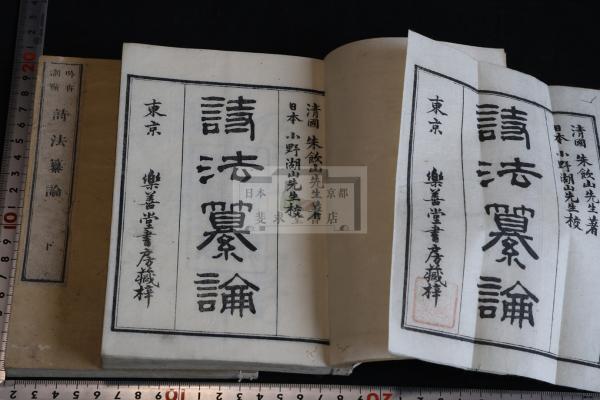 詩法纂論
下
清國 朱飲山先生著
日本 小野湖山先生校
詩法纂論
東京 樂善堂書房藏梓
清國 朱飲山先生著
日本 小野湖山先生校
詩法纂論
東京 樂善堂書房藏梓
日本 京都
書店
20
10
10
20